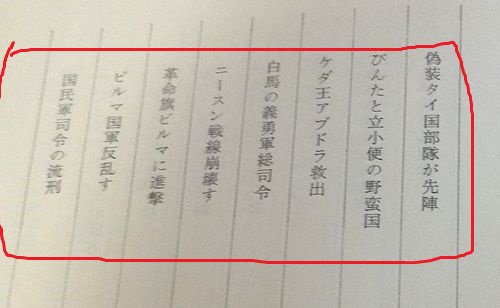 偽装タイ国部隊が先陣
びんたと立小便の野蛮国
ケダ王アブドラ救出
白馬の義勇軍総司令
ニースン戦線崩壊す
革命旗ビルマに進撃
ビルマ国軍反乱す
国民軍司令の流刑